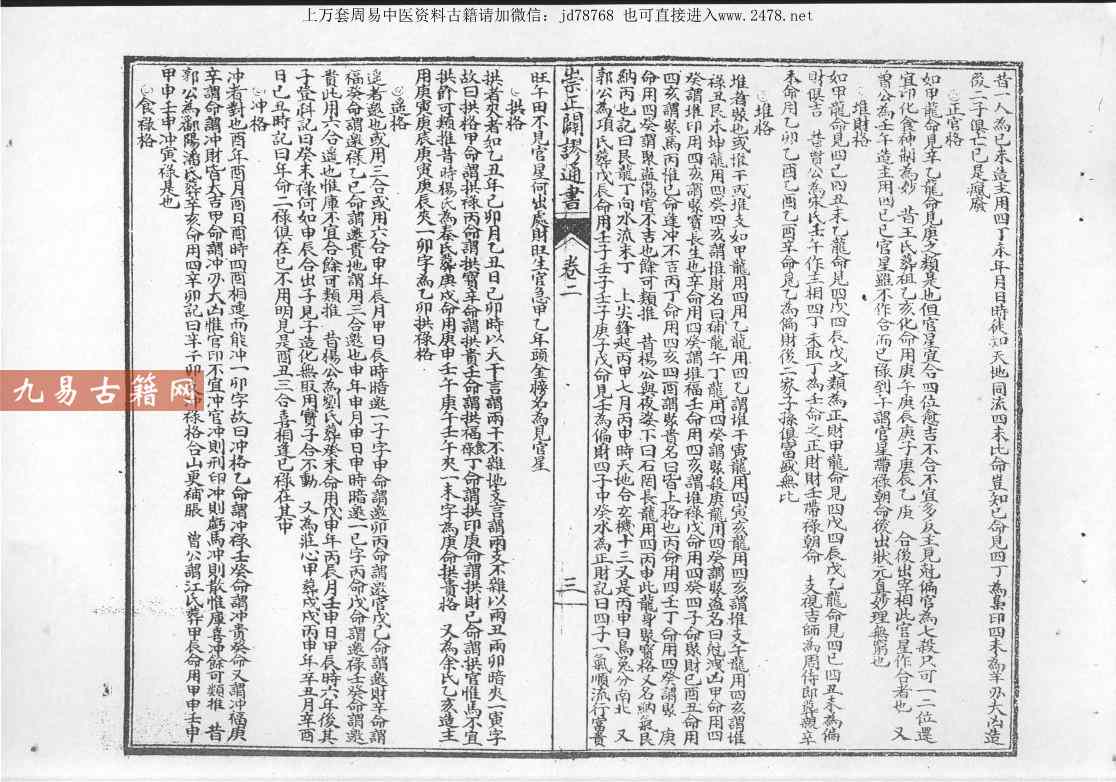 上万套周易中医资料古籍请加微信：jd78768 也可直接进入www.2478.net
昔一人為己未造主用四丁未年月日時彼如天地同流四未比命豈知己命見四丁為梟印四未為羊刃大凶造
後二子俱亡己是瘋廢
正官格
如甲龍命見辛乙龍命見庚之類是也但官星宜合四位愈吉不合不宜多反主見尅偏官為七殺只可一二位還
宜印化食神制為妙　昔王氏葬祖乙亥化命用庚午庚辰庚子庚辰乙庚　合後出宰相此官星作合者也　又
曾公為壬午造主用四己己官星雖不作合而己祿到午謂官星帶祿朝命後出狀元真妙理無窮也
堆財格
如甲龍命見四己四丑未乙龍命見四戊四辰戌之類為正財甲龍命見四戊四辰戌乙龍命見四己四丑未為偏
財俱吉　昔曾公為宋氏壬午作主相四丁未取丁為壬命之正財財壬帶祿朝命　又視吉師為周侍郎葬顯辛
未命用乙卯乙酉乙酉乙酉辛命見乙為偏財後二家子孫俱富盛無比
堆格
堆者聚也或堆干或堆支如甲龍用四甲乙龍用四乙謂堆干寅龍用四寅亥龍用四亥謂堆支午龍用四亥謂堆
祿丑艮未坤龍用四癸四亥謂堆財名曰補龍午丁龍用四癸謂聚殺庚龍用四癸謂聚盜名曰尅洩凶甲命用四
癸謂堆印用四亥謂聚寶長生也辛命用四癸謂堆福壬命用四亥謂堆祿戊命用四癸四子命聚財己丑命用
四亥謂聚馬丙堆己命逢冲不吉丙丁命用四亥四酉謂聚貴名曰皆上格也丙命用四壬丁命用四癸謂聚
命用四癸謂聚盜傷官不吉也餘可類推　昔楊公與夜姿下曰石罔長龍用四丙申此龍身聚寶格又名納氣艮
納丙也記曰艮龍丁向水流末丁　上尖鋒起丙甲七月丙申時天地合玄機十三又是丙申日烏兔分南北　又
郭公為項氏葬戊辰命用壬子壬子壬子庚子戊命見壬為偏財四子中癸水為正財記曰四子一氣順流行富貴
崇正闢謬通書　卷二　三
旺午田不見官星何出處財旺生官急甲乙年頭金榜名為見官星
拱格
拱者夾者如乙丑年己卯月乙丑日己卯時以天干言謂兩干不雜地支言謂兩支不雜以兩丑兩卯暗夾一寅字
故曰拱格甲命謂拱祿丙命謂拱寶辛命謂拱貴壬命謂拱福丁命謂拱印庚命謂拱財己命謂拱官惟馬不宜
拱餘可類推昔時楊氏為秦氏葬庚戌命用庚申壬午庚午壬午夾一未字為庚命拱貴格　又為余氏乙亥造主
用庚寅庚辰庚寅庚辰夾一卯字為乙卯拱祿格
遥格
遥者邀也或用三合或用六合申年辰月甲日辰時暗邀一子字申命謂邀印丙命謂邀官戊己命謂邀財辛命謂
福癸命謂邀祿乙己命謂邀貴地謂用三合邀也申年申月申日申時暗邀一巳字丙命戊命謂邀祿壬癸命謂邀
貴此用六合遥也惟庫不宜合餘可類推　昔楊公為劉氏葬癸未命用戊申年丙辰月壬申日甲辰時六年後其
子登科記曰癸未祿何如申辰合出子見子造化無取用實子合不動　又為莊心甲葬戊戌丙申年辛丑月辛酉
日己丑時記曰年命二祿俱在巳不用明見是酉丑三合喜相逢巳祿在其中
冲格
冲者對也酉年酉月酉日酉時四酉相連而能冲一卯字故曰冲格乙命謂冲祿壬癸命謂冲貴癸命又謂冲福庚
辛謂命謂冲財官大吉甲命謂冲刃大凶惟官印不宜冲官冲則刑印冲則虧馬冲則散惟庫喜冲餘可類推　昔
郭公為鄱陽潘氏葬辛亥命用四辛卯記曰羊子卯祿格合山更補脹　曾公謂江氏葬甲辰命用甲申壬申
甲申壬申冲寅祿是也
食祿格
九易古籍网